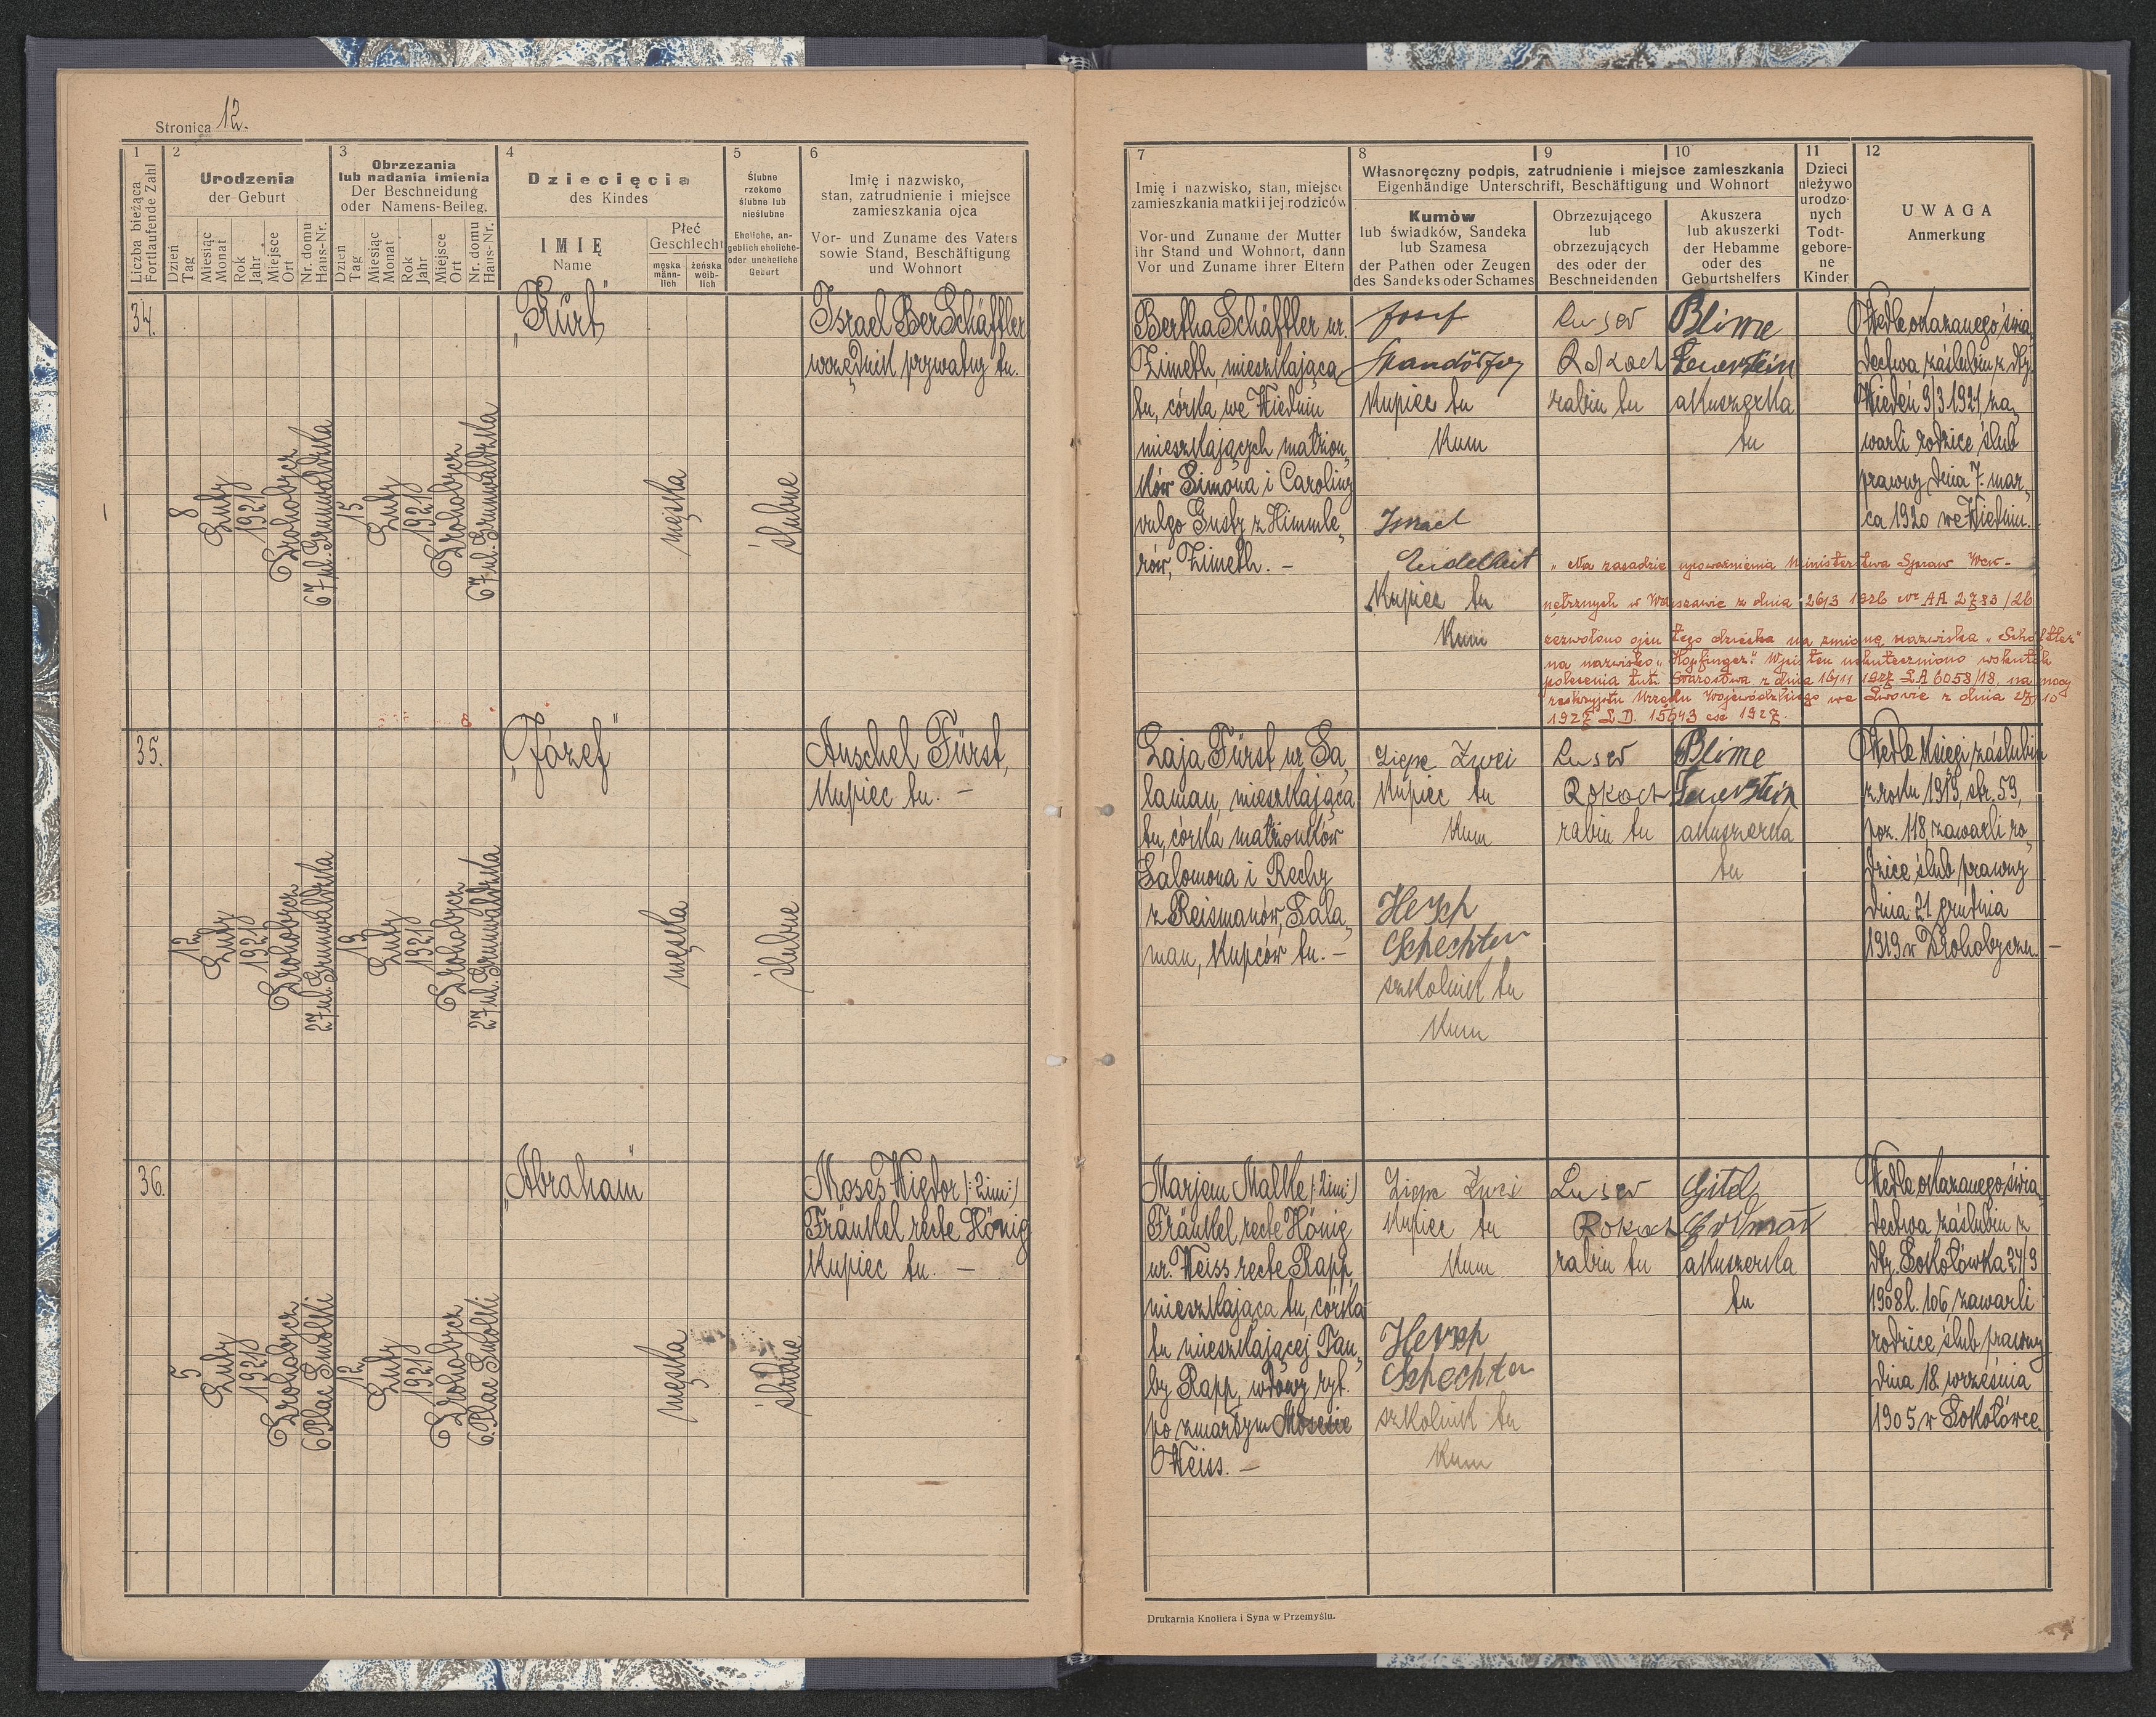 Stronica 12.
1
Liczba bieżąca
Fortlaufende Zahl
2
Urodzenia
der Geburt
Dzień
Tag
Miesiąc
Monat
Rok
Jahr
Miejsce
Ort
Nr. domu
Haus-Nr.
3
Obrzezania
lub nadania imienia
Der Beschneidung
oder Namens-Beileg.
Dzień
Tag
Miesiąc
Monat
Rok
Jahr
Miejsce
Ort
Nr. domu
Haus-Nr.
4
Dziecięcia
des Kindes
IMIĘ
Name
Płeć
Geschlecht
męska
männ-
lich
żeńska
weib-
lich
5
Ślubne
rzekomo
ślubne lub
nieślubne
Eheliche, an-
geblich eheliche-
oder uneheliche
Geburt
6
Imię i nazwisko,
stan, zatrudnienie i miejsce
zamieszkania ojca
Vor- und Zuname des Vaters
sowie Stand, Beschäftigung
und Wohnort
7
Imię i nazwisko, stan, miejsce
zamieszkania matki i jej rodziców
Vor-und Zuname der Mutter
ihr Stand und Wohnort, dann
Vor und Zuname ihrer Eltern
8
9
10
Własnoręczny podpis, zatrudnienie i miejsce zamieszkania
Eigenhändige Unterschrift, Beschäftigung und Wohnort
Kumów
lub świadków, Sandeka
lub Szamesa
der Pathen oder Zeugen
des Sandeks oder Schames
Obrzezującego
lub
obrzezujących
des oder der
Beschneidenden
Akuszera
lub akuszerki
der Hebamme
oder des
Geburtshelfers
11
Dzieci
nieżywo
urodzo-
nych
Todt-
gebore-
ne
Kinder
12
UWAGA
Anmerkung
34.
8
Luty
1921
Drohobycz
67 ul. Grunwaldzka
15
Luty
1921
Drohobycz
67 ul. Grunwaldzka
„Kurt"
męska
ślubne
Israel Ber Schäffler
urzędnik prywatny tu.
Bertha Schäffler ur.
Zimeth, mieszkająca
tu, córka we Wiedniu
mieszkających małżon„
ków Simona i Caroliny
vulgo Gusty z Himmle„
rów, Zimeth. –
Josef
Kupiec tu
Kum
Israel
Eidelheit
Kupiec tu
Kum
Luser
Rokach
rabin tu
Blime
Feuerstein
akuszerka
tu
Wedle okazanego świa„
dectwa zaślubin z dty
Wiedeń 9/3 1921, za„
warli rodzice ślub
prawny dnia 7. mar„
ca 1920 we Wiedniu.
„Na zasadzie upoważnienia Ministerstwa Spraw Wew-
nętrznych w Warszawie z dnia 26/3 1926 nr AA 2783/26
zezwolono ojcu tego dziecka na zmianę nazwiska „Schäffler"
na nazwisko „Hopfinger". Wpis ten uskuteczniono wskutek
polecenia tut. Starostwa z dnia 16/11 1927 LA 6058/18, na mocy
reskryptu Urzędu Wojewódzkiego we Lwowie z dnia 27/10
1927 L.D. 15643 1927.
35.
12
Luty
1921
Drohobycz
27 ul. Grunwaldzka
19
Luty
1921
Drohobycz
27 ul. Grunwaldzka
„Józef"
męska
ślubne
Anschel Fürst,
Kupiec tu. –
Laja Fürst ur. Sa„
laman, mieszkająca
tu, córka małżonków
Salomona i Rechy
z Reismanów, Sala„
man, Kupców tu. –
Kupiec tu
Kum
Hersch
Schechter
szkolnik tu
Kum
Luser
Rokach
rabin tu
Blime
Feuerstein
akuszerka
tu
Wedle Księgi zaślubin
z roku 1919, str. 59,
poz. 118, zawarli ro„
dzice ślub prawny
dnia 21 grudnia
1919 w Drohobyczu. –
36.
5
Luty
1921
Drohobycz
6 Plac Smolki
12
Luty
1921
Drohobycz
6 Plac Smolki
„Abraham"
męska
ślubne
Moses Wigdor /:2im:/
Fränkel recte König
Kupiec tu. –
Marjem Malke /:2im:/
Fränkel recte König
ur. Weiss recte Rapp,
mieszkająca tu, córka
tu mieszkającej Tau„
by Rapp, wdowy ryt.
po zmarłym Mosesie
Weiss. –
Kupiec tu
Kum
Hersch
Schechter
szkolnik tu
Kum
Luser
Rokach
rabin tu
Gitel
akuszerka
tu
Wedle okazanego świa„
dectwa zaślubin z
dty. Sokołówka 24/9
1908 l. 106, zawarli
rodzice ślub prawny
dnia 18. września
1905 w Sokołówce.
Drukarnia Knollera i Syna w Przemyślu.